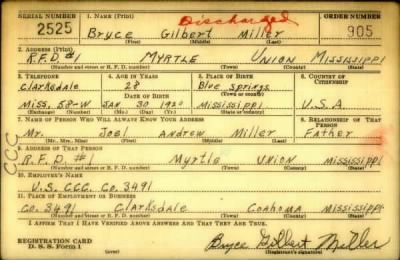 SERIAL NUMBER 1. NAME (Print) Discharged ORDER NUMBER
2525 Bryce Gilbert Miller 905
(First) (Middle) (Last)
2. ADDRESS (Print)
R.F.D. #1 MYRTLE UNION MISSISSIPPI
(Number and street or R. F. D. number) (Town) (County) (State)
3. TELEPHONE 4. AGE IN YEARS 5. PLACE OF BIRTH 6. COUNTRY OF CITIZENSHIP
Clarksdale 28 Blue Springs
DATE OF BIRTH (Town or county)
Miss. 58-W JAN 30 Mississippi U.S.A.
(Exchange) (Number) (Mo.) (Day) (Yr.) (State or country)
7. NAME OF PERSON WHO WILL ALWAYS KNOW YOUR ADDRESS 8. RELATIONSHIP OF THAT PERSON
Mr. Joel Andrew Miller Father
(Mr., Mrs., Miss) (First) (Middle) (Last)
CCC
9. ADDRESS OF THAT PERSON
R.F.D. #1 Myrtle Union Mississippi
(Number and street or R. F. D. number) (Town) (County) (State)
10. EMPLOYER'S NAME
U.S. CCC. Co. 3491
11. PLACE OF EMPLOYMENT OR BUSINESS
Co. 3491 Clarksdale Coahoma Mississippi
(Number and street or R. F. D. number) (Town) (County) (State)
I AFFIRM THAT I HAVE VERIFIED ABOVE ANSWERS AND THAT THEY ARE TRUE.
REGISTRATION CARD
D. S. S. Form 1 Bryce Gilbert Miller
(Registrant's signature)